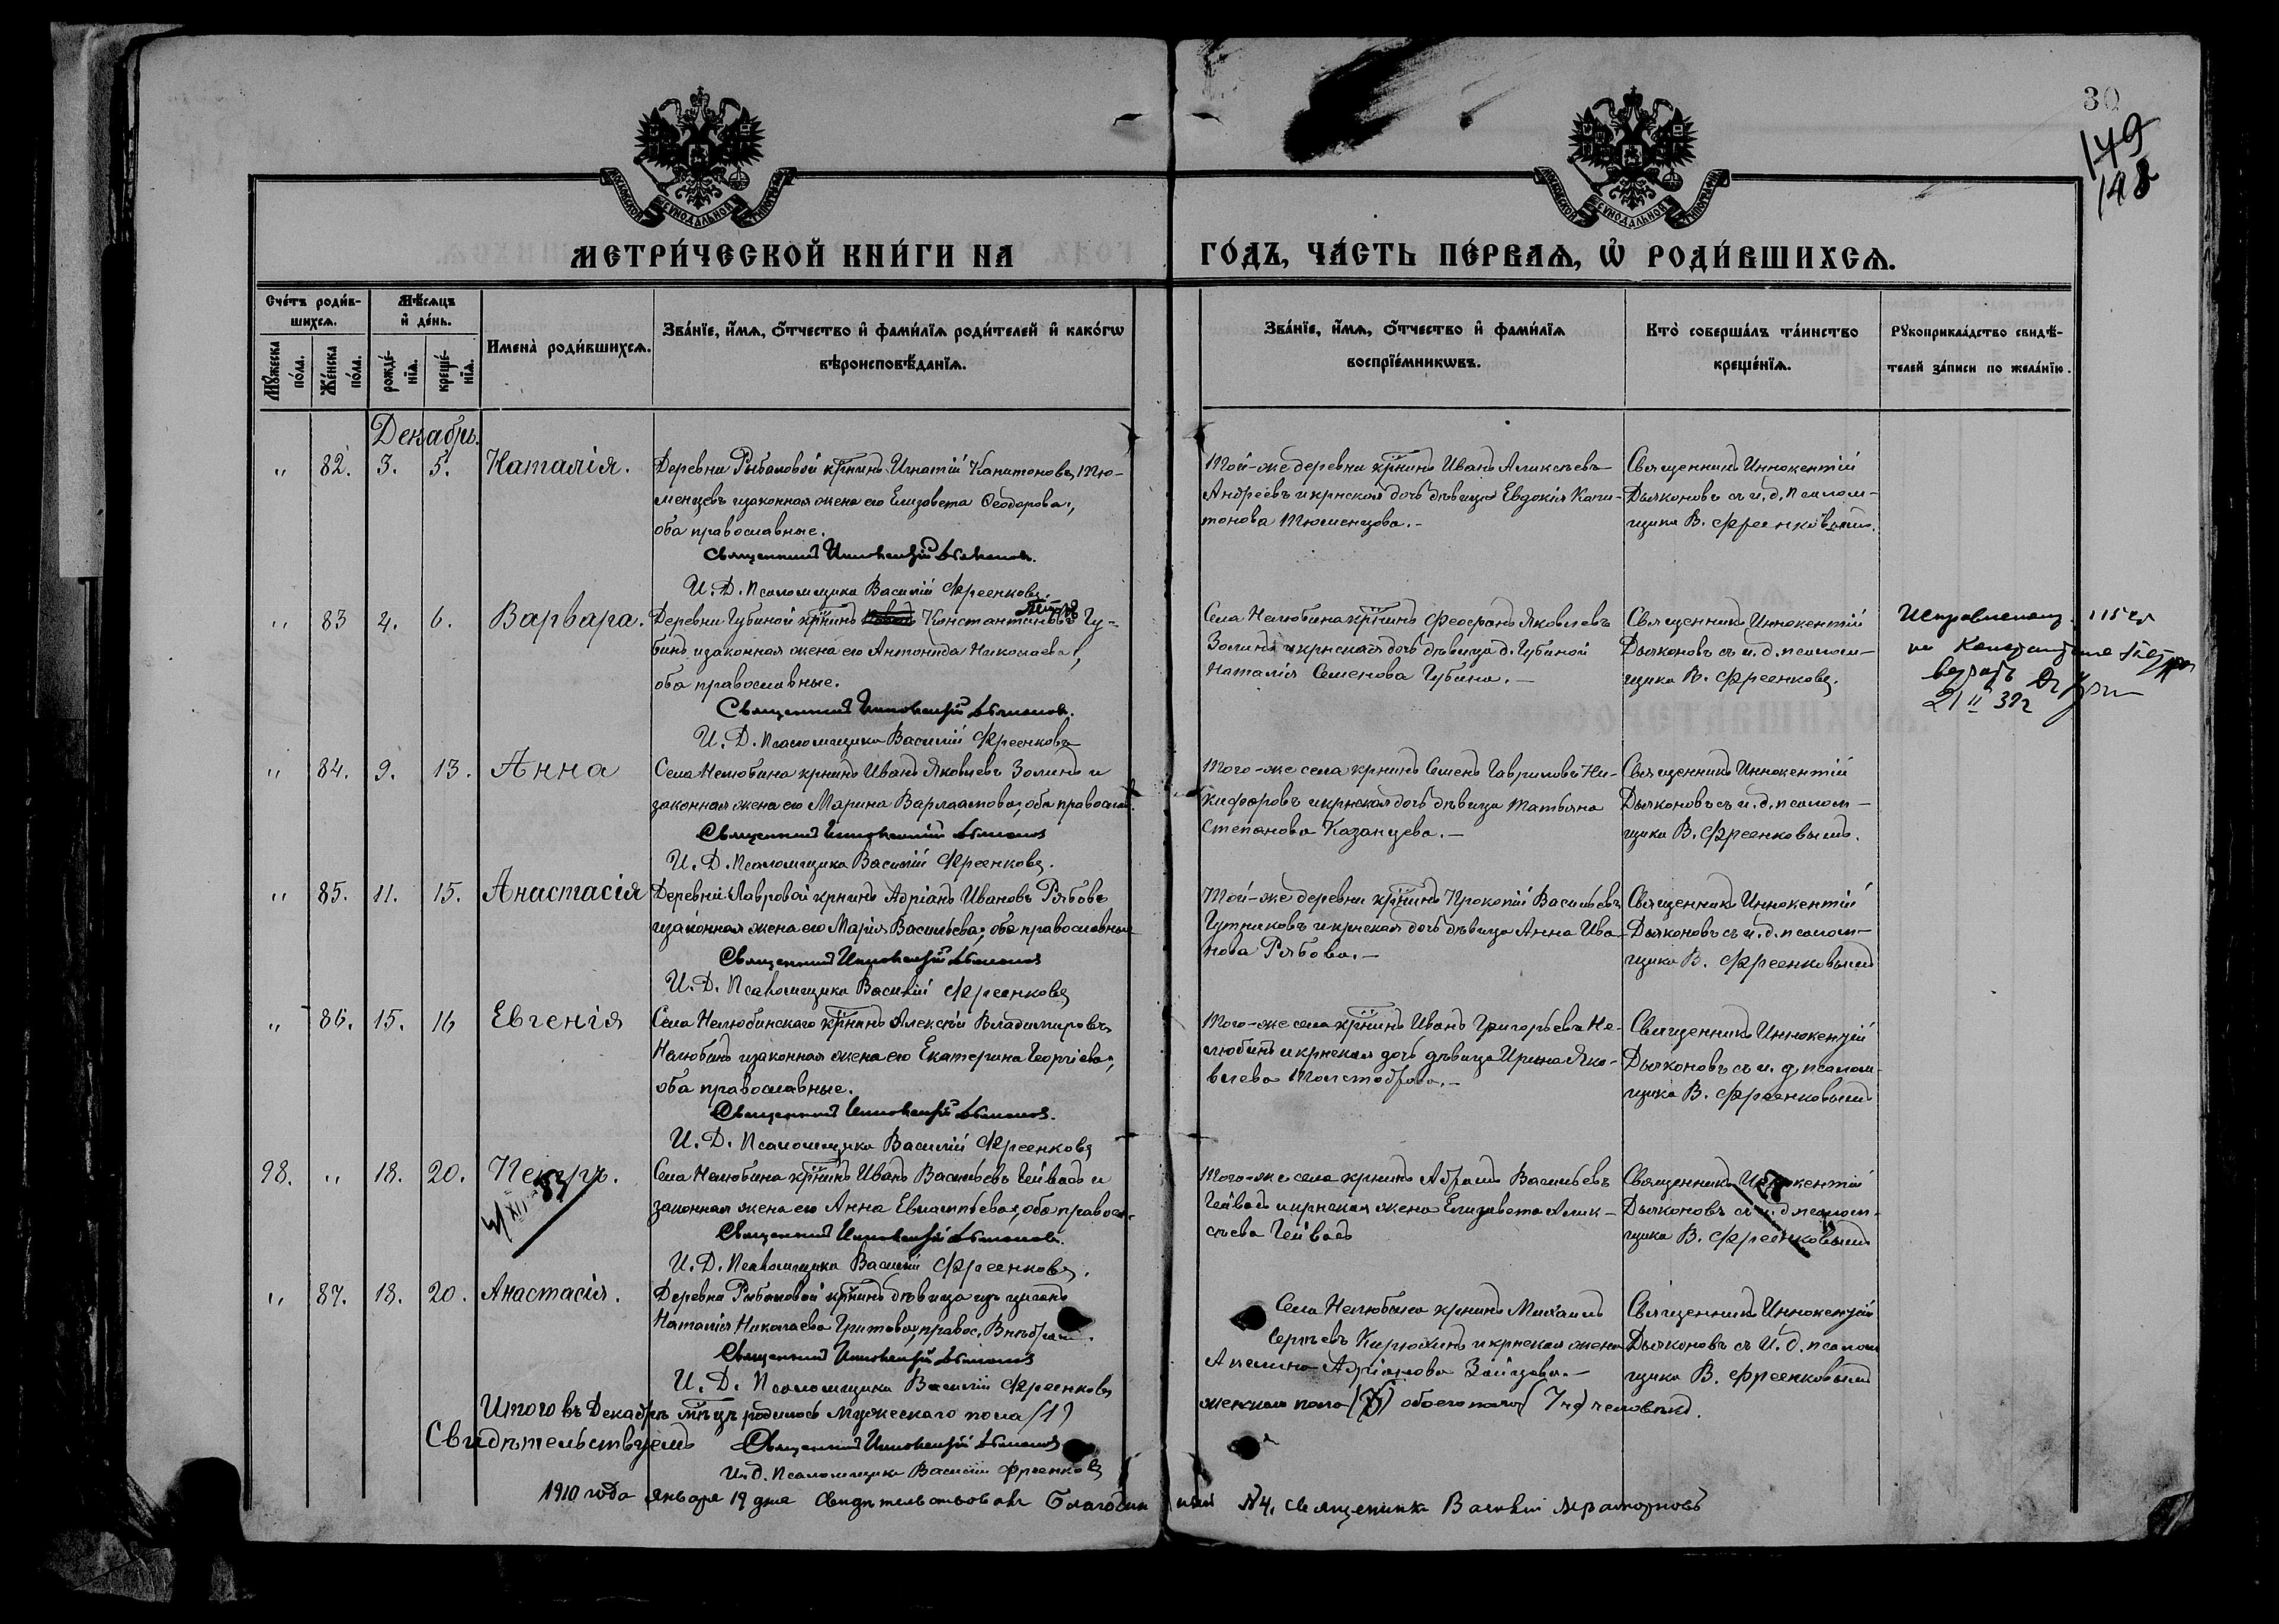 30
149
148
МОСКОВСКОЙ СѴНОДАЛЬНОЙ ТИПОГРАФІИ
МОСКОВСКОЙ СѴНОДАЛЬНОЙ ТИПОГРАФІИ
МЕТРИ́ЧЕСКОЙ КНИ́ГИ НА
ГО́ДЪ, ЧА́СТЬ ПЕ́РВАѦ, Ѡ҆ РОДИ́ВШИХСѦ.
Сче́тъ роди́в-
шихсѧ.
Мꙋ́жеска по́ла.
Же́нска по́ла.
Мѣ́сѧцъ
и҆ де́нь.
рожде́-
нїѧ.
креще́-
нїѧ.
Имена̀ роди́вшихсѧ.
Зва́нїе, и҆́мѧ, ѻ҆́тчество и҆ фами́лїѧ роди́телей и҆ како́гѡ
вѣроисповѣ́данїѧ.
Зва́нїе, и҆́мѧ, ѻ҆́тчество и҆ фами́лїѧ
воспрїе́мникѡвъ.
Кто̀ соверша́лъ та́инство
креще́нїѧ.
Рꙋкоприкла́дство свидѣ́-
телей за́писи по жела́нїю.
Декабрь.
„ 82. 3. 5. Наталія.
Деревни Рыбаловой крнинъ Игнатій Капитоновъ Тю-
менцевъ и законная жена его Елизовета Ѳеодорова,
оба православные.
Священникъ Иннокентій Дьяконовъ.
И. Д. Псаломщика Василій Фреенковъ.
Той-же деревни крнинъ Иванъ Аликсѣевъ
Андреевъ и крнская дочь дѣвица Евдокія Капи-
тонова Тюменцова.-
Священникъ Иннокентій
Дьяконовъ съ и. д. псалом-
щика В. Фреенковымъ.
„ 83 4. 6. Варвара.
Петръ
Деревни Губиной крнинъ Константиновъ Гу-
бинъ и законная жена его Антонида Николаева,
оба православные.
Священникъ Иннокентій Дьяконовъ.
И. Д. Псаломщика Василій Фреенковъ
Села Нелюбина крнинъ Феофанъ Яковлевъ
Золинъ и крнская дочь дѣвица д. Губиной
Наталія Семенова Губина.-
Священникъ Иннокентій
Дьяконовъ съ и. д. псалом-
щика В. Фреенковъ.
21 II 32г
„ 84. 9. 13. Анна
Села Нелюбина крнинъ Иванъ Яковлевъ Золинъ и
законная жена его Марина Варлаамова, оба правосла.
Священникъ Иннокентій Дьяконовъ
И. Д. Псаломщика Василій Фреенковъ.
Того-же села крнинъ Семенъ Гавриловъ Ни-
кифоровъ и крнская дочь дѣвица Татьяна
Степанова Казанцева.-
Священникъ Иннокентій
Дьяконовъ съ и. д. псалом-
щика В. Фреенковымъ.
„ 85. 11. 15. Анастасія
Деревни Лавровой крнинъ Адріанъ Ивановъ Рябовъ
и законная жена его Марія Васильева, оба православные
Священникъ Иннокентій Дьяконовъ
И. Д. Псаломщика Василій Фреенковъ
Той-же деревни крнинъ Прокопій Васильевъ
Гутниковъ и крнская дочь дѣвица Анна Ива-
нова Рябова.-
Священникъ Иннокентій
Дьяконовъ съ и. д. псалом-
щика В. Фреенковымъ
„ 86. 15. 16 Евгенія
Села Нелюбинскаго крнинъ Алексѣй Владимировъ
Нелюбинъ и законная жена его Екатерина Георгіева,
оба православные.
Священникъ Иннокентій Дьяконовъ.
И. Д. Псаломщика Василій Фреенковъ
Того-же села крнинъ Иванъ Григорьевъ Не-
любинъ и крнская дочь дѣвица Ирина Яко-
влева Толстоброва.-
Священникъ Иннокентій
Дьяконовъ съ и. д. псалом-
щика В. Фреенковымъ
98. „ 18. 20. Петръ.
Села Нелюбина крнинъ Иванъ Васильевъ Чейвасъ и
законная жена его Анна Евлампьева, оба правосл.
Священникъ Иннокентій Дьяконовъ.
И. Д. Псаломщика Василій Фреенковъ.
Того-же села крнинъ Абрамъ Васильевъ
Чейвасъ и крнская жена Елизавета Алик-
сѣева Чейвасъ
Священникъ Иннокентій
Дьяконовъ съ и. д. псалом-
щика В. Фреенковымъ
„ 87. 18. 20. Анастасія.
Деревни Рыбаловой дѣвица изъ цыганъ
Наталія Николаева правос.
Священникъ Иннокентій Дьяконовъ
И. Д. Псаломщика Василій Фреенковъ
Села Нелюбина крнинъ Михаилъ
Сергѣевъ Кирюхинъ и крнская жена
Адріанова Зайцева.-
Священникъ Иннокентій
Дьяконовъ съ И. д. псалом
щика В. Фреенковымъ
Итого въ Декабрѣ мѣцѣ родилось мужескаго пола (1)
женскаго пола обоего пола (7) человѣкъ.
Свидѣтельствуемъ Священникъ Иннокентій Дьяконовъ
И. д. Псаломщика Василій Фреенковъ
1910 года января 19 дня Свидѣтельствовалъ Благочинный №4, священникъ Василій